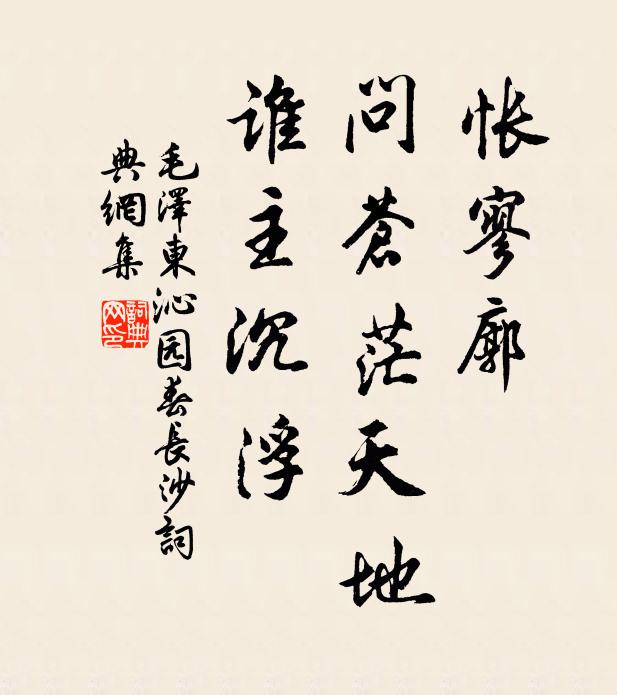 悵寥廓
問蒼茫天地
誰主沉浮
毛澤東沁园春長沙詞
典網集
詞典
网印